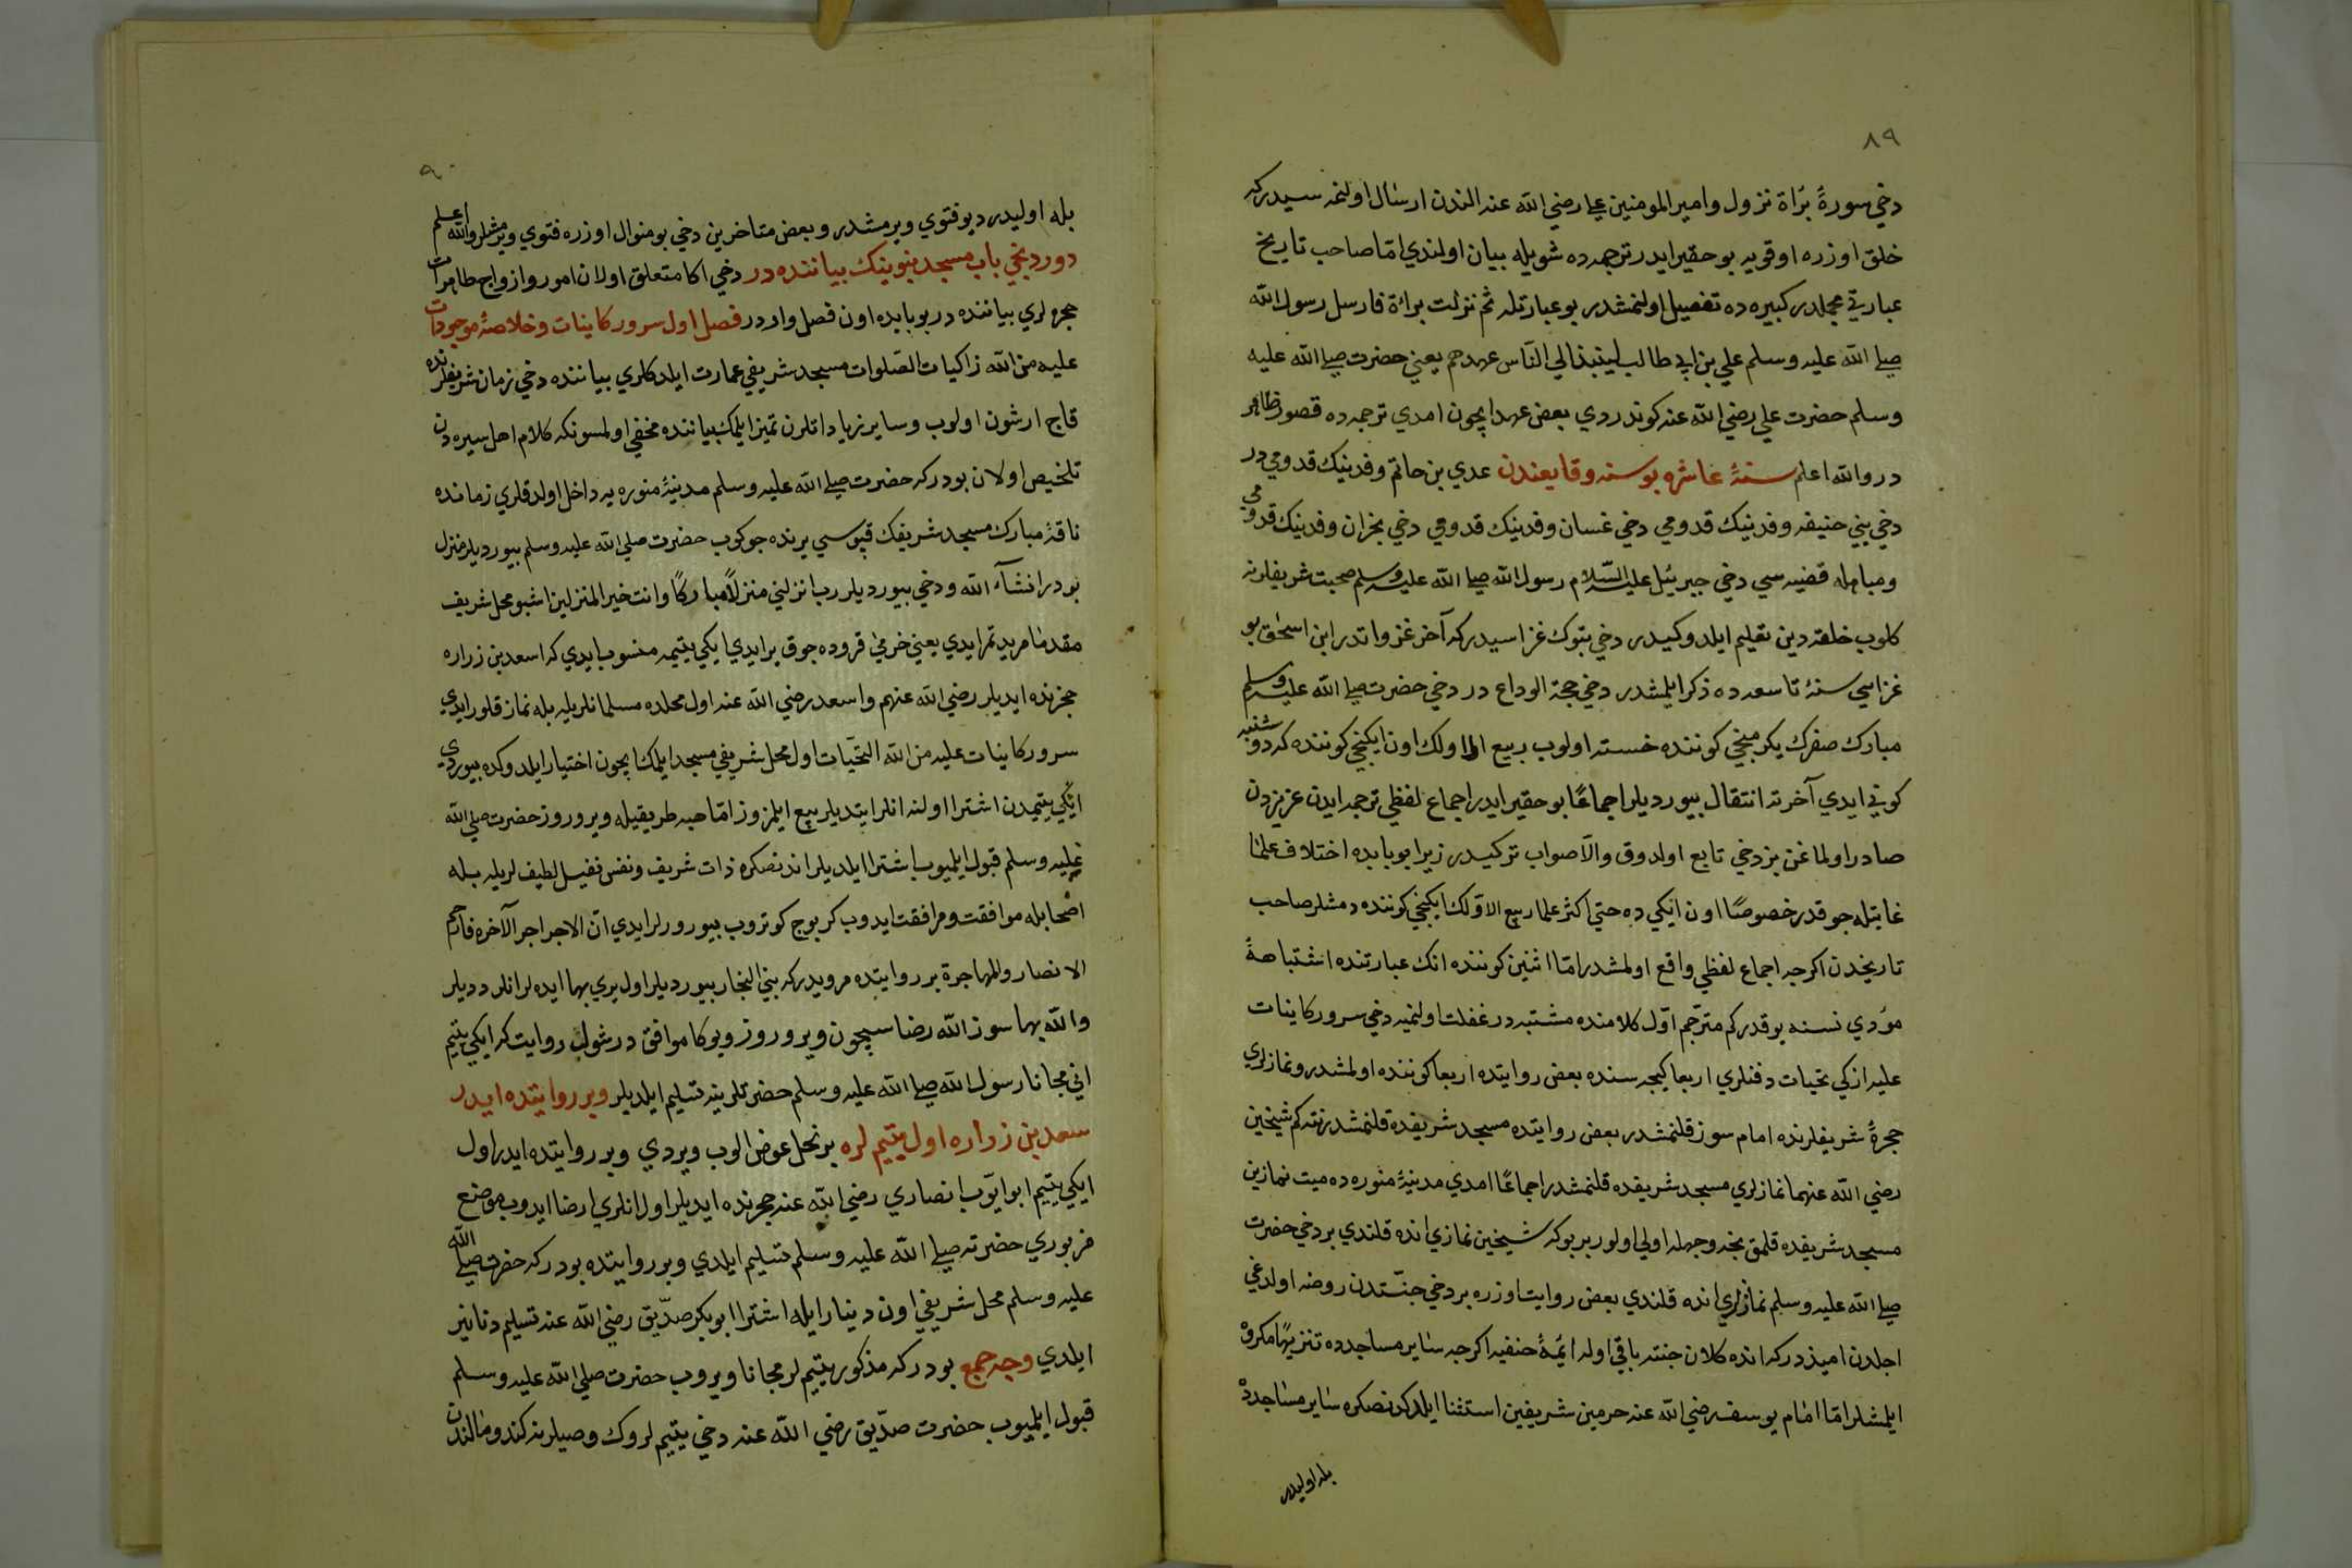 ٨٩
دخي سورۀ برٔاة نزول وامير المومنين علي رضي الله عنه الندن ارسال اولنمه سيدركه
خلق اوزره اوقويه بو حقير ايدر ترجمه ده شويله بيان اولندي امّا صاحب تاريخ
عبارتي مجلد كبيره ده تفصيل اولنمشدر بو عبارتله ثم نزلت برائة فارسل رسول الله
صلي الله عليه وسلم علي بن ابي طالب لينبذ الي النّاس عهدهم يعني حضرت صلي الله عليه
وسلم حضرت علي رضي الله عنه كوندردي بعض عهد ايچون امدي ترجمه ده قصور ظاهر
در والله اعلم سنۀ عاشره بو سنه وقايعندن عدي بن حاتم وفدينك قدومي در
دخي بني حنيفه وفدينك قدومي دخي غسان وفدينك قدومي دخي نجران وفدينك قدومي
ومباهله قضيه سي دخي جبرئل عليه السّلام رسول الله صلي الله عليه وسلم صحبت شريفلرنه
كلوب خلقه دين تعليم ايلدوكيدر دخي تبوك غزاسيدركه آخر غزواتدر ابن اسحٰق بو
غزاسي سنۀ تاسعه ده ذكر ايلمشدر دخي حجة الوداع در دخي حضرت صلي الله عليه وسلم
مبارك صفرك يكرمنجي كوننده خسته اولوب ربيع الاولك اون ايكنجي كوننده كه دوشنبه
كوني ايدي آخرته انتقال بيورديلر اجماعًا بو حقير ايدر اجماع لفظي ترجمه ايدن عزيزدن
صادر اولماغن بز دخي تابع اولدوق والّا صواب تركيدر زيرا بو بابده اختلاف علما
غايتله چوقدر خصوصًا اون ايكي ده حتي اكثر علما ربيع الاوّلك ايكنجي كوننده دمشلر صاحب
تاريخدن اكرچه اجماع لفظي واقع اولمشدر امّا اثنين كوننده انك عبارتنده اشتباهۀ
مؤدي نسنه يوقدر كم مترجم اوّل كلامنده مشتبه در غفلت اولنميه دخي سرور كاينات
عليه ازكي تحيات دفنلري اربعا كيجه سنده بعض روايتده اربعا كوننده اولمشدر ونمازلري
حجرۀ شريفلرنده امام سوز قلنمشدر بعض روايتده مسجد شريفده قلنمشدر نته كم شيخين
رضي الله عنهما نمازلري مسجد شريفده قلنمشدر اجماعًا امدي مدينۀ منوره ده ميت نمازين
مسجد شريفده قلمق نجه وجهله اولي اولور بر بو كه شيخين نمازي انده قلندي بر دخي حضرت
صلي الله عليه وسلم نمازلري انده قلندي بعض روايت اوزره بر دخي جنّتدن روضه اولدغي
اجلدن اميذدركه انده كلان جنته باقي اوله ائمۀ حنفيه اكرچه ساير مساجدده تنزيهًا مكروه
ايلمشلر امّا امام يوسف رضي الله عنه حرمين شريفين استثنا ايلدكدنصكره ساير مساجدده
بله اوليدر
٩٠
بله اوليدر ديو فتوي ويرمشدر وبعض متاخرين دخي بو منوال اوزره فتوي ويرمشلر والله اعلم
دوردنجي باب مسجد نبوينك بياننده در دخي اكا متعلق اولان امور وازواج طاهرات
حجره لري بياننده در بو بابده اون فصل واردر فصل اول سرور كاينات وخلاصۀ موجودات
عليه من الله زاكيات الصّلوات مسجد شريفي عمارت ايلدكلري بياننده دخي زمان شريفلرنده
قاچ ارشون اولوب وساير زياداتلرن تميز ايلمك بياننده مخفي اولمسونكه كلام اهل سيره دن
تلخيص اولان بودركه حضرت صلي الله عليه وسلم مدينۀ منوره يه داخل اولدقلري زمانده
ناقۀ مبارك مسجد شريفك قپوسي يرنده چوكوب حضرت صلي الله عليه وسلم بيورديلر منزل
بودر انشآء الله ودخي بيورديلر رب انزلني منزلًا مباركًا وانت خير المنزلين اشبو محل شريف
مقدما مربد تمر ايدي يعني خرمي قروده جوق ير ايدي ايكي يتيمه منسوب ايدي كه اسعد بن زراره
حجرنده ايديلر رضي الله عنهم واسعد رضي الله عنه اول محلده مسلمانلريله بله نماز قلور ايدي
سرور كاينات عليه من الله التحيّات اول محل شريفي مسجد ايلمك ايچون اختيار ايلدوكده بيوردي
ايكي يتيمدن اشترا اولنه انلر ايتديلر بيع ايلمزوز امّا هبه طريقيله ويروروز حضرت صلي الله
عليه وسلم قبول ايلميوب اشترا ايلديلر اندنصكره ذات شريف ونفس نفيس لطيفلريله بله
اصحابله موافقت ومرافقت ايدوب كرپوج كوتروب بيورورلر ايدي انّ الاجر اجر الآخره فارحم
الانصار والمهاجرة بر روايتده مرويدركه بني النجار بيورديلر اول يري بها ايده لر انلر دديلر
والله بها سوز الله رضاسيچون ويروروز وبوكا موافق در شول روايت كه ايكي يتيم
اني مجانا رسول الله صلي الله عليه وسلم حضرتلرينه تسليم ايلديلر وبر روايتده ايدر
سعد بن زراره اول يتيم لره بر نخل عوض الوب ويردي وبر روايتده ايدر اول
ايكي يتيم ابو ايوّب انصاري رضي الله عنه حجرنده ايديلر اول انلري ارضا ايدوب موضع
مزبوري حضرته صلي الله عليه وسلم تسليم ايلدي وبر روايتده بودركه حضرت صلي الله
عليه وسلم محل شريفي اون دينار ايله اشترا ابو بكر صدّيق رضي الله عنه تسليم دنانير
ايلدي وجه جمع بودركه مذكور يتيم لر مجانا ويروب حضرت صلي الله عليه وسلم
قبول ايلميوب حضرت صدّيق رضي الله عنه دخي يتيم لروك وصيلرنه كندو مالندن